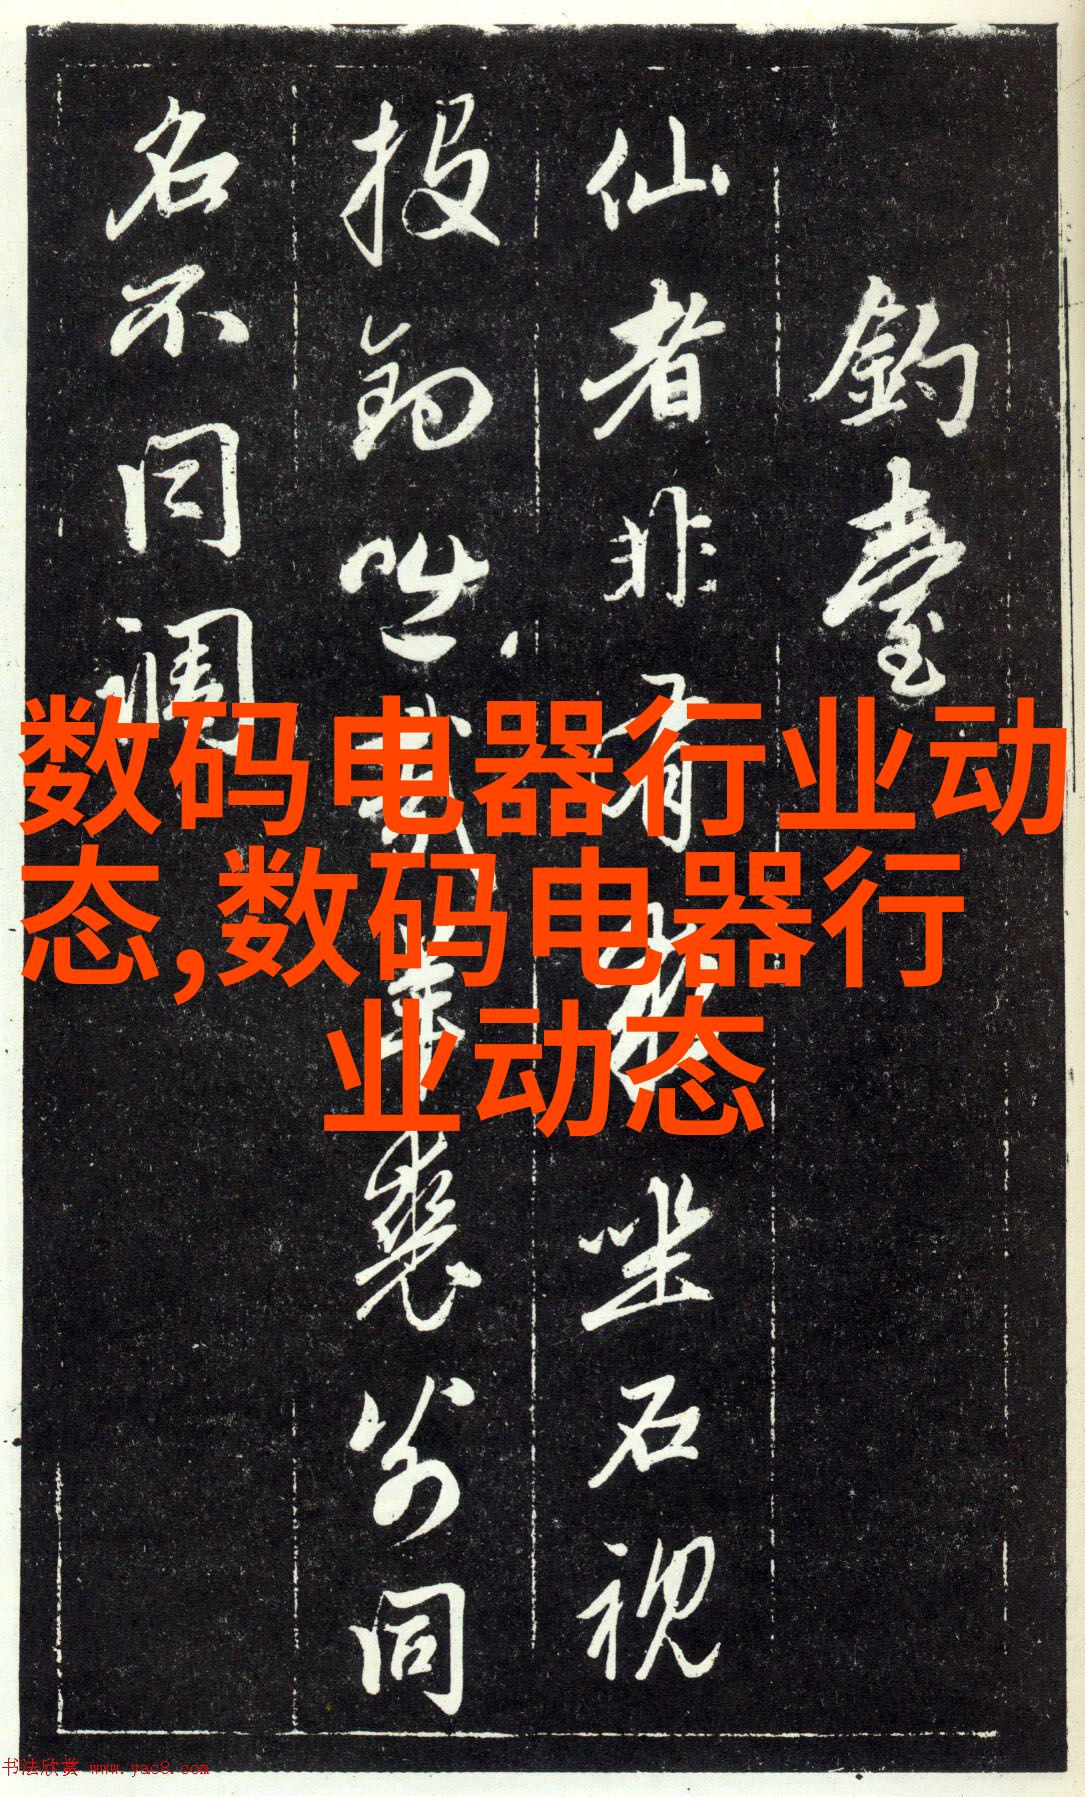 釣臺
仙者非有坐石視
投釣羊裘同
名不同調
数码电器行业动
态,数码电器行
业动态
书法欣赏 www.yac8.com